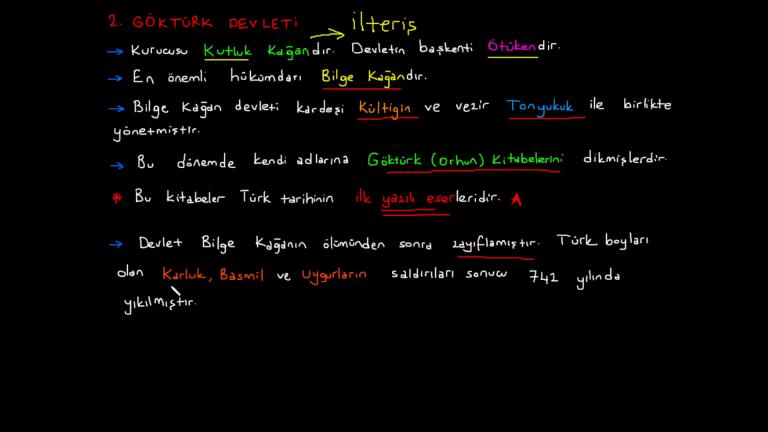 2. GÖKTÜRK DEVLETİ → ilteriş
→ Kurucusu Kutluk Kağandır. Devletin başkenti Ötükendir.
→ En önemli hükümdarı Bilge Kağandır.
→ Bilge Kağan devleti kardeşi Kültigin ve vezir Tonyukuk ile birlikte
yönetmiştir.
→ Bu dönemde kendi adlarına Göktürk (Orhun) Kitabelerini dikmişlerdir.
* Bu kitabeler Türk tarihinin ilk yazılı eserleridir. A
→ Devlet Bilge Kağanın ölümünden sonra zayıflamıştır. Türk boyları
olan Karluk, Basmil ve Uygurların saldırıları sonucu 742 yılında
yıkılmıştır.